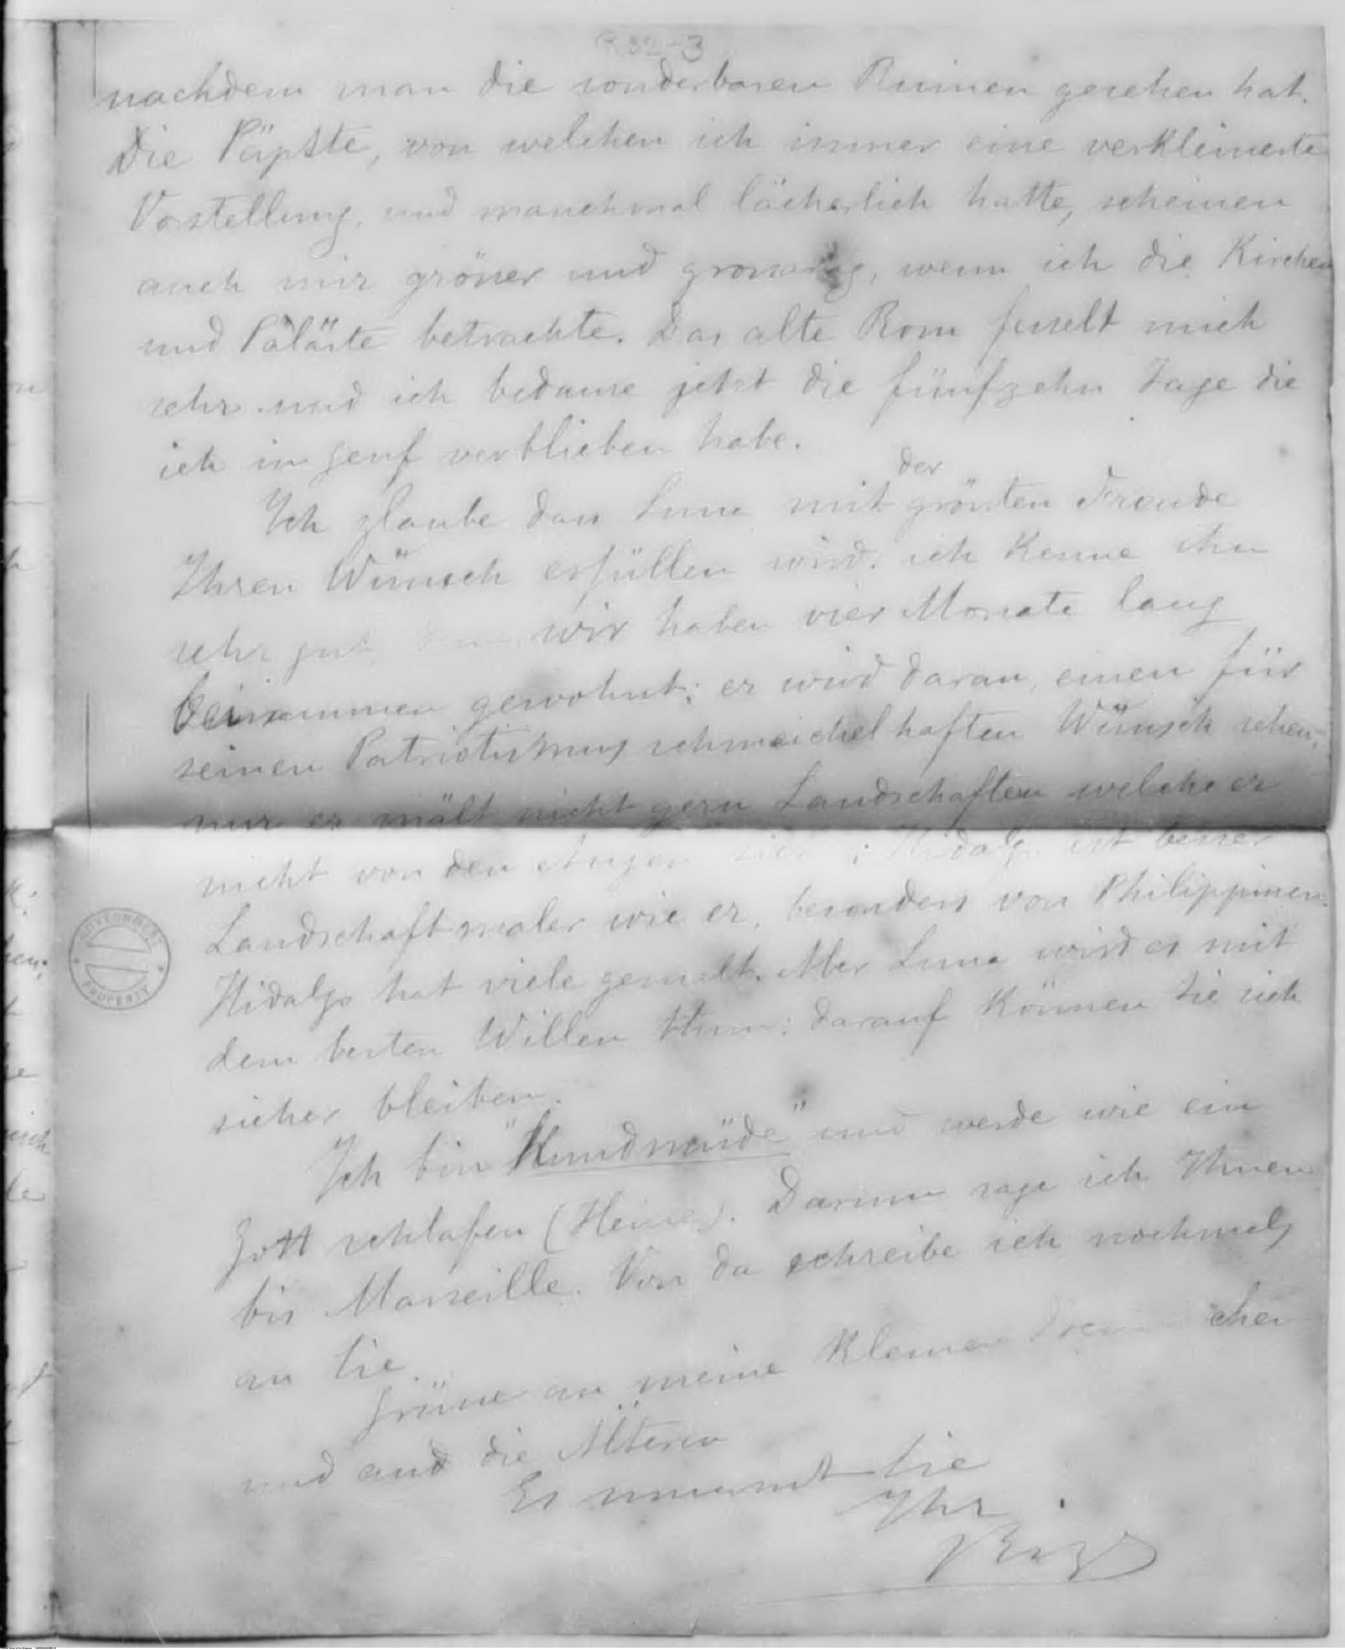 R 32-3
nachdem man die sonderbaren Ruinen gesehen hat.
Die Päpste, von welchen ich immer eine verkleinerte
Vorstellung, und manchmal lächerlich hatte, scheinen
auch mir grösser und grossartig, wenn ich die Kirchen
und Paläste betrachte. Das alte Rom fesselt mich
sehr und ich bedaure jetzt die fünfzehn Tage die
ich in Genf verblieben habe.
der
Ich glaube dass Luna mit grössten Freude
Ihren Wünsch erfüllen wird. ich Kenne ihn
sehr gut wir haben vier Monate lang
beisammen gewohnt; er wird daran, einen für
seinen Patriotismus schmeichelhaften Wünsch sehen;
nur er mält nicht gern Landschaften welche er
nicht von den Augen ; Hidalgo ist besser
Landschaftmaler wie er, besonders von Philippinen.
Hidalgo hat viele gemalt. Aber Luna wird es mit
dem besten Willen thun; darauf Können Sie sich
sicher bleiben.
Ich bin "Hundmüde" und werde wie ein
Gott schlafen (Heine). Darum sage ich Ihnen
bis Marseille. Von da schreibe ich nochmals
an Sie.
Grüsse an meine Kleinen chen
und auch die Älteren
Es umarmt Sie
Ihr
Rizal
GOVERNMENT PROPERTY